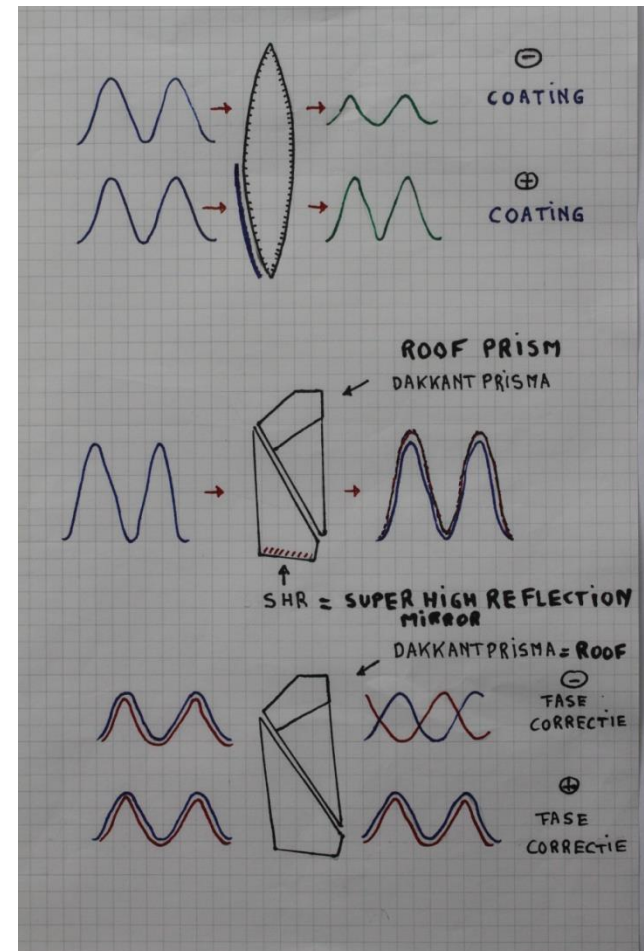 ⊖
COATiNG
⊕
COATiNG
ROOF PRiSM
DAKKANT PRiSMA
SHR = SUPER HiGH REFLECTiON
MiRROR
DAKKANTPRiSMA = ROOF
⊖
FASE
CORRECTiE
⊕
FASE
CORRECTiE